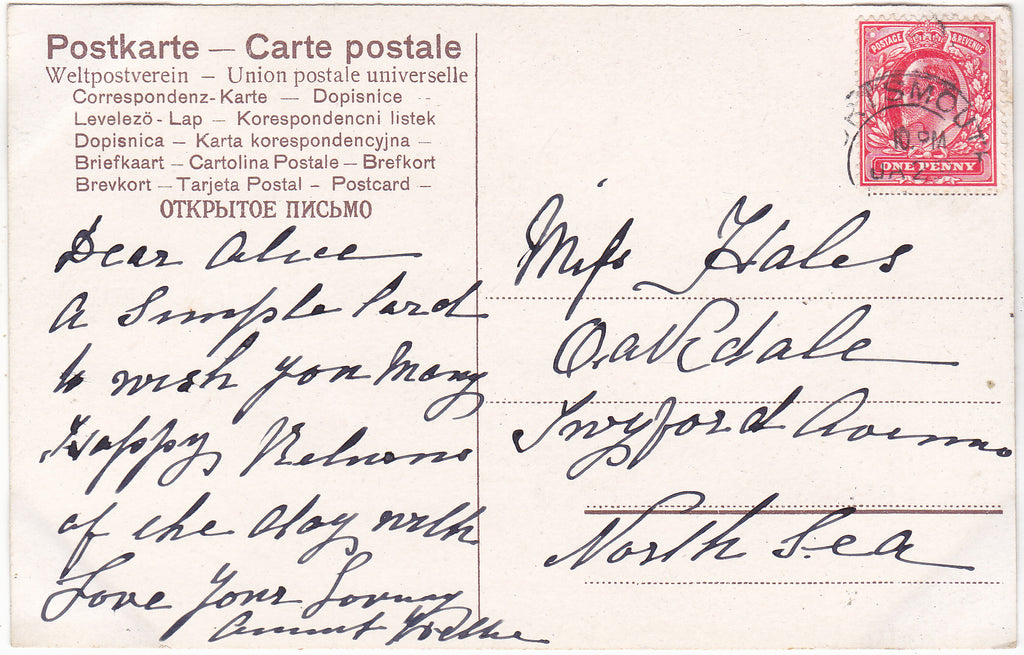 Postkarte — Carte postale
Weltpostverein — Union postale universelle
Correspondenz-Karte — Dopisnice
Levelező-Lap — Korespondencni listek
Dopisnica — Karta korespondencyjna —
Briefkaart — Cartolina Postale — Brefkort
Brevkort — Tarjeta Postal — Postcard —
ОТКРЫТОЕ ПИСЬМО
Dear Alice
A Simple Card
to wish you Many
Happy Returns
of the day with
Love Your Loving
Aunt
POSTAGE & REVENUE
10 PM
ONE PENNY
Miss Hales
Oakdale
Twyford Avenue
North Sea